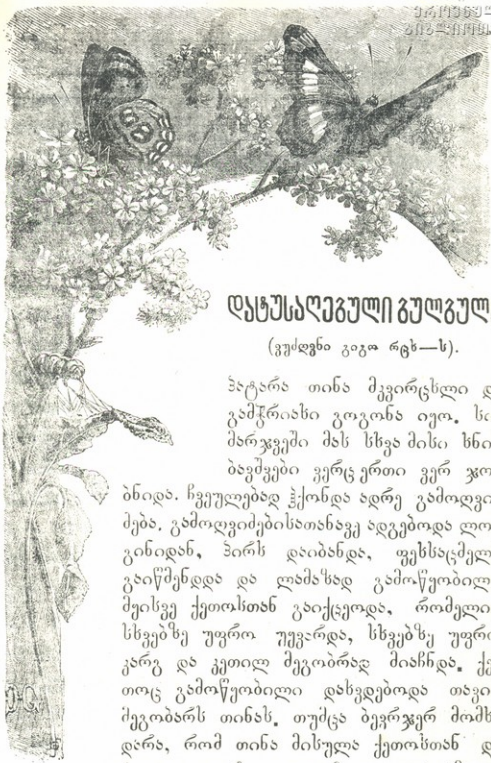 ეროვნულ
ბიბლიოთ
დატუსაღებული ბულბულ
(ვუძღვნი გიგო რცხ—ს).
პატარა თინა მკვირცხლი დ
გამჭრიახი გოგონა იყო. სი
მარჯვეში მას სხვა მისი ხნი
ბავშვები ვერც ერთი ვერ ჯო
ბნიდა. ჩვეულებად ჰქონდა ადრე გამოღვი
ძება. გამოღვიძებისათანავე ადგებოდა ლო
გინიდან, პირს დაიბანდა, ფეხსაცმელ
გაიწმენდდა და ლამაზად გამოწყობილ
მეისვე ქეთოსთან გაიქცეოდა, რომელი
სხვებზე უფრო უყვარდა, სხვებზე უფრო
კარგ და კეთილ მეგობრად მიაჩნდა. ქე
თოც გამოწყობილი დახვდებოდა თავი
მეგობარს თინას. თუმცა ბევრჯერ მომხ
დარა, რომ თინა მისულა ქეთოსთან დ